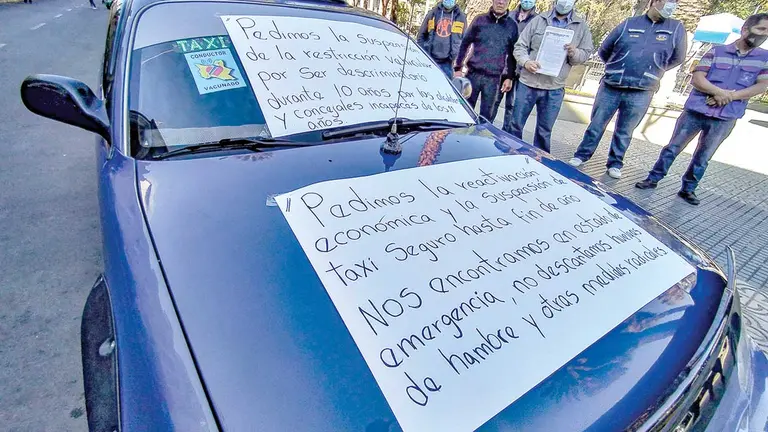 "Pedimos la suspensión
de la restricción vehicular
por ser descriminatorio
durante 10 años por los alcaldes
y concejales incapaces de los 11
años.
TAXI
CONDUCTOR
VACUNADO
"Pedimos la reactivación
económica y la suspensión de
taxi Seguro hasta fin de año
Nos encontramos en estado de
emergencia, no descantamos huelgas
de hambre y otras medidas radicales